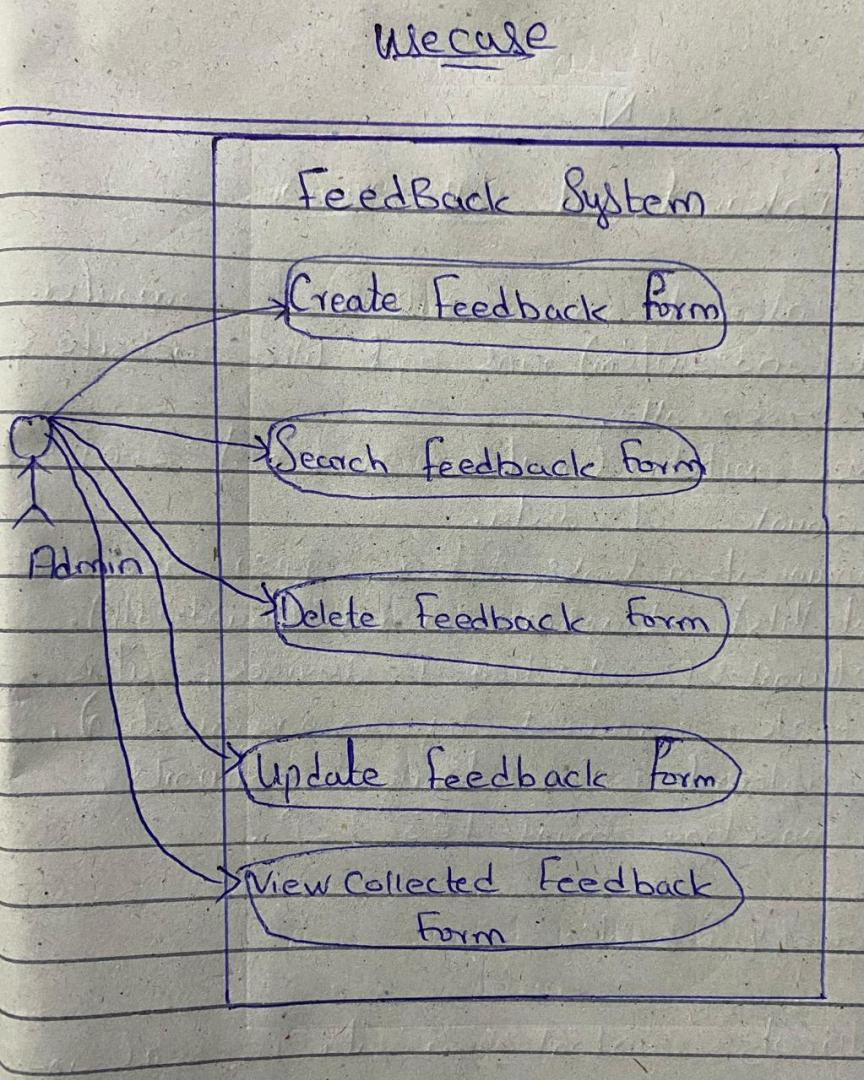 usecase
FeedBack System
Create Feedback Form
Search feedback Form
Admin
Delete Feedback Form
Update feedback Form
View Collected Feedback
Form